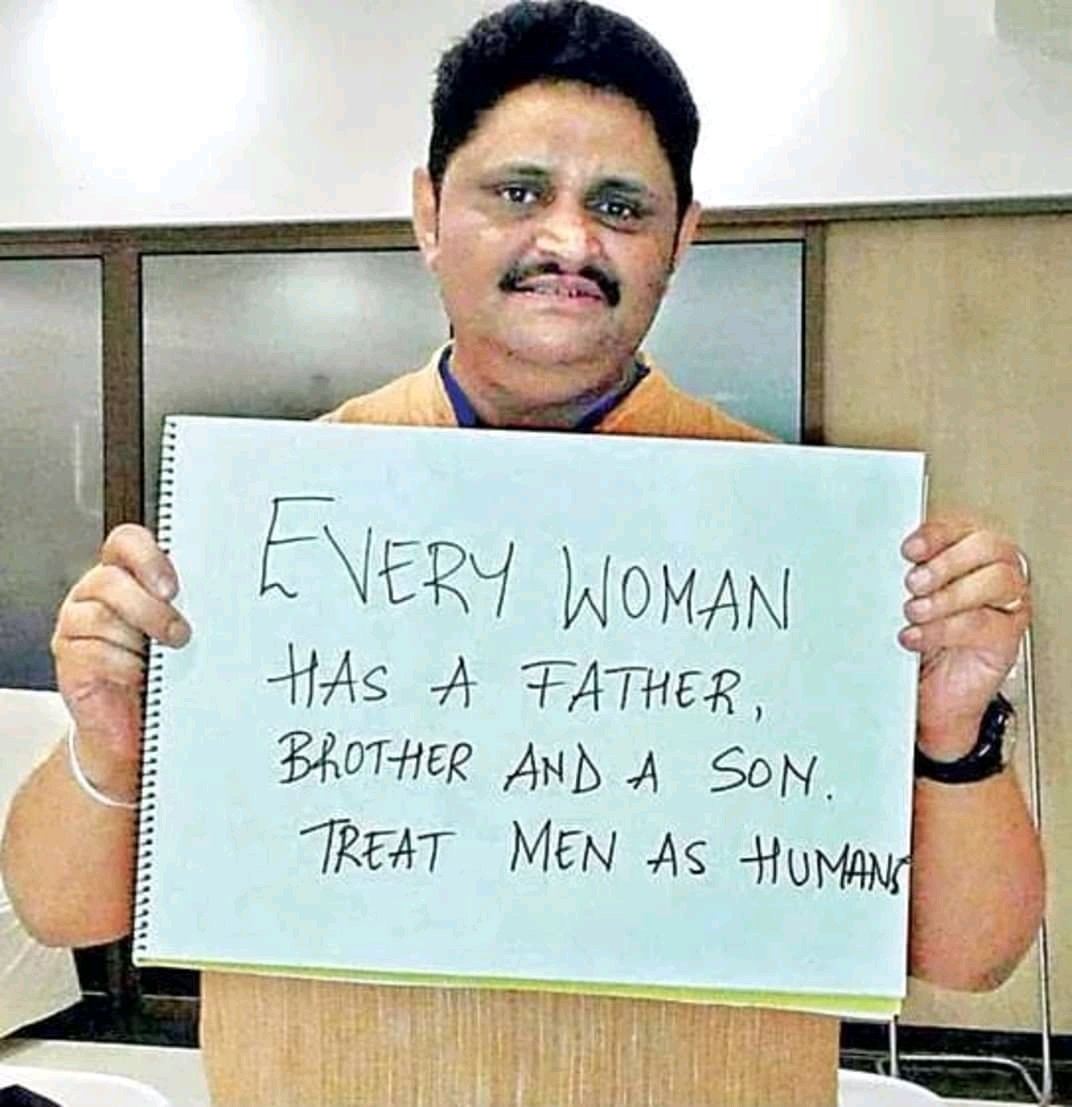 EVERY WOMAN
HAS A FATHER,
BROTHER AND A SON.
TREAT MEN AS HUMANS